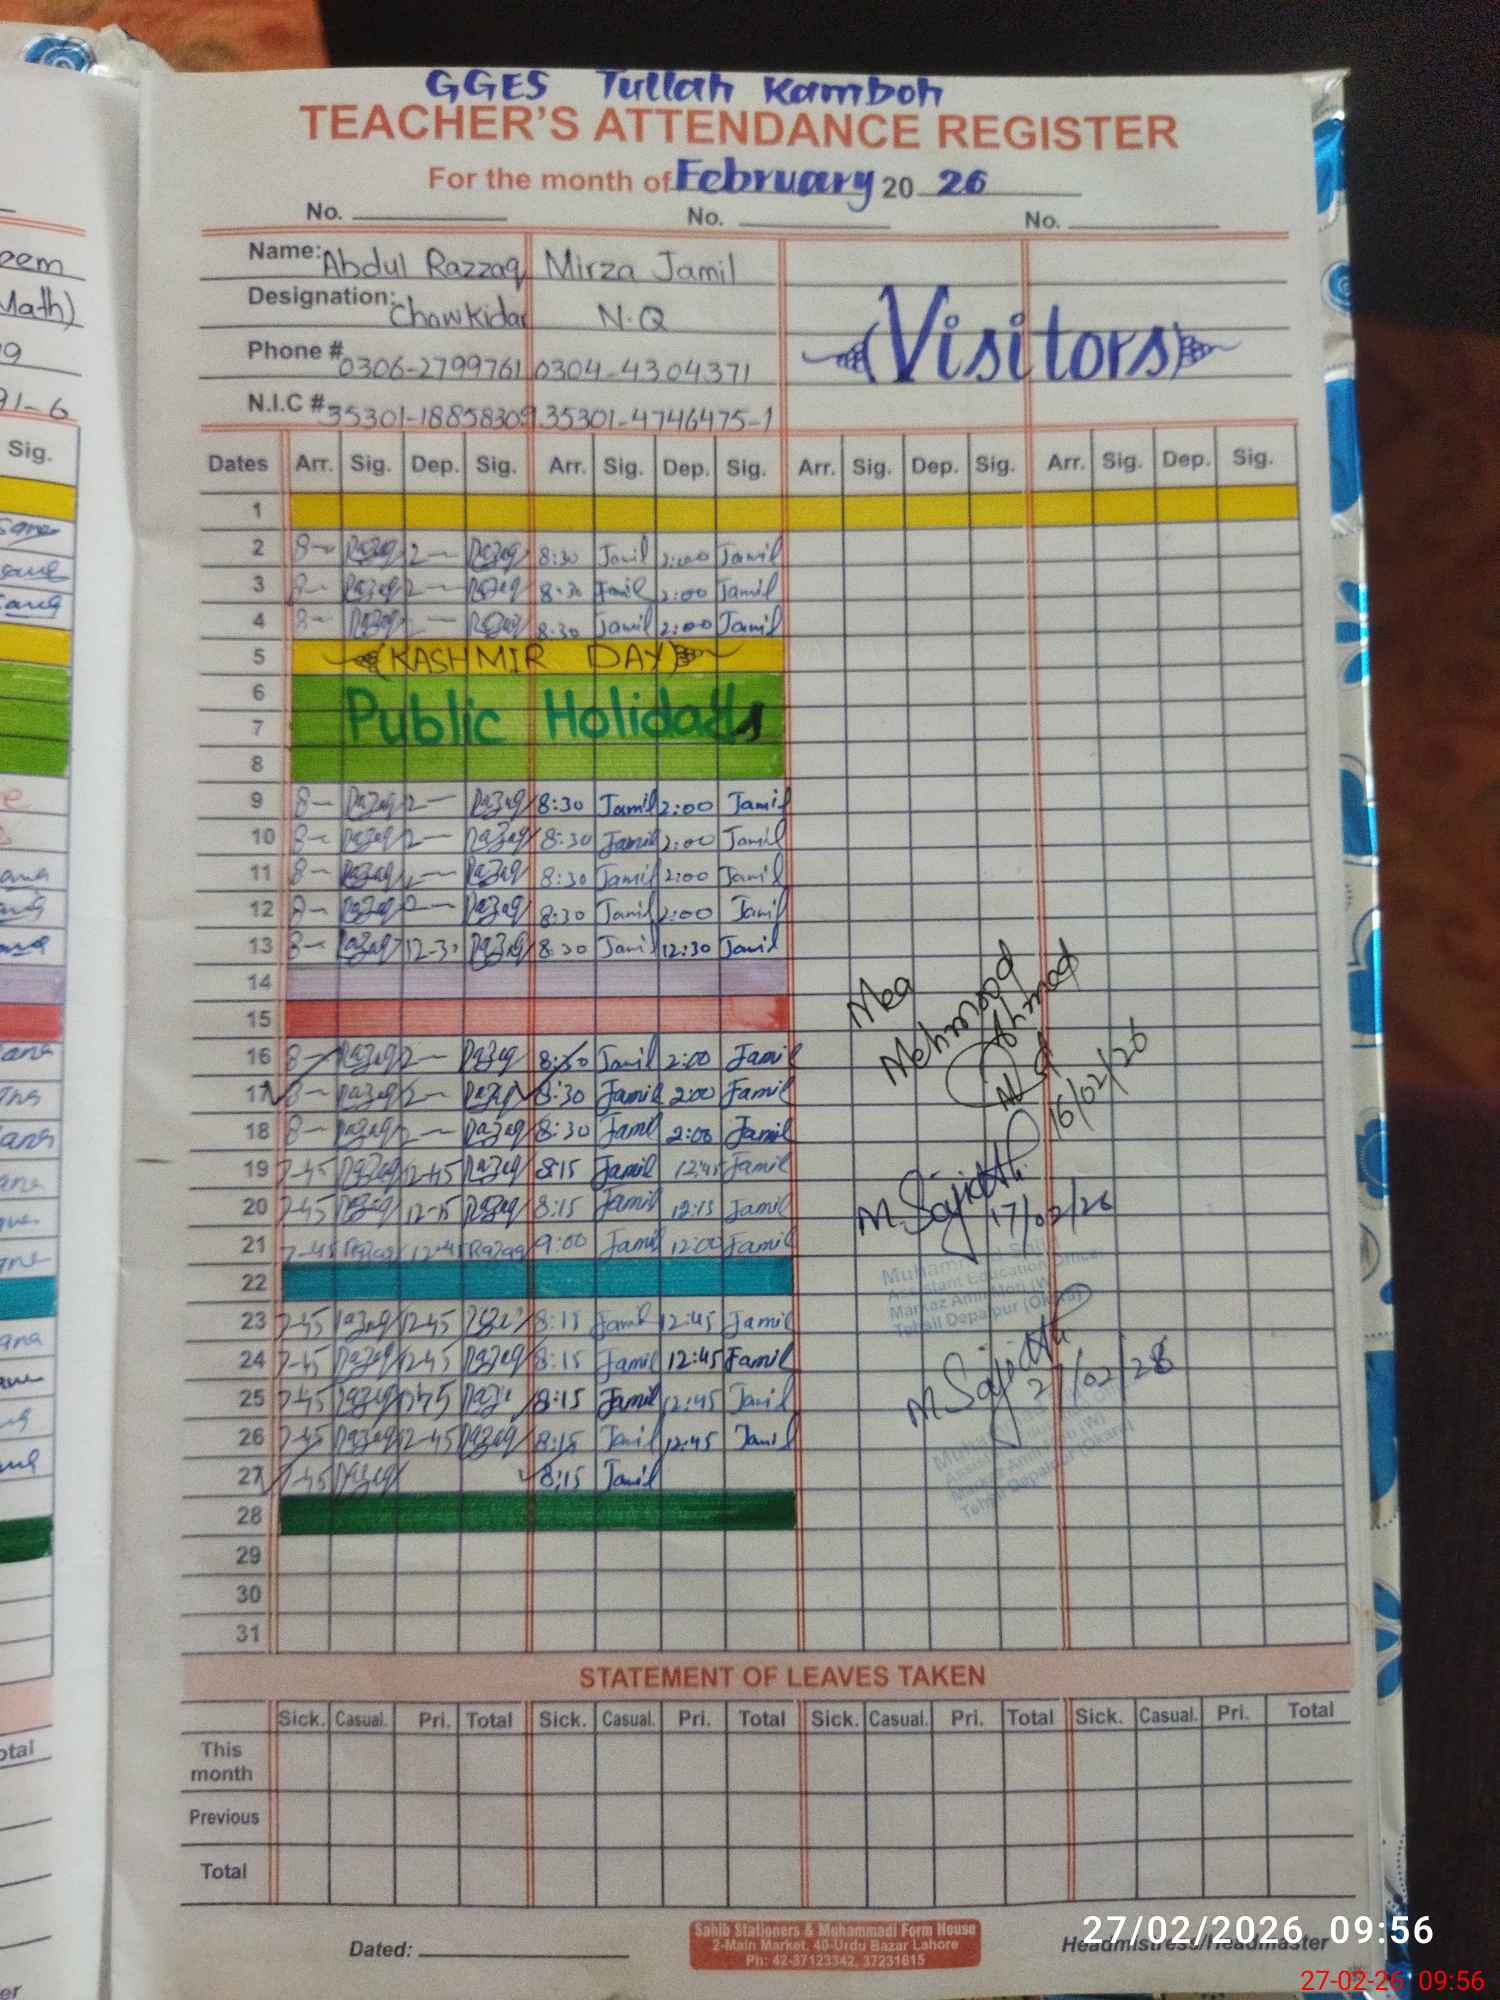 GGES Tullah Kamboh
TEACHER'S ATTENDANCE REGISTER
For the month of February 20 26
No. No. No.
Name: Abdul Razzaq Mirza Jamil
Designation: Chowkidar N.Q
Visitors
Phone # 0306-2799761 0304-4304371
N.I.C # 35301-18858309 35301-4746475-1
Dates Arr. Sig. Dep. Sig. Arr. Sig. Dep. Sig. Arr. Sig. Dep. Sig. Arr. Sig. Dep. Sig.
1
2 8- Razaq 2- Razaq 8:30 Jamil 2:00 Jamil
3 8- Razaq 2- Razaq 8:30 Jamil 2:00 Jamil
4 8- Razaq 2- Razaq 8:30 Jamil 2:00 Jamil
5 KASHMIR DAY
6
7 Public Holidays
8
9 8- Razaq 2- Razaq 8:30 Jamil 2:00 Jamil
10 8- Razaq 2- Razaq 8:30 Jamil 2:00 Jamil
11 8- Razaq 2- Razaq 8:30 Jamil 2:00 Jamil
12 8- Razaq 2- Razaq 8:30 Jamil 2:00 Jamil
13 8- Razaq 12-30 Razaq 8:30 Jamil 12:30 Jamil
14
15
16 8- Razaq 2- Razaq 8:30 Jamil 2:00 Jamil
17 8- Razaq 2- Razaq 8:30 Jamil 2:00 Jamil
18 8- Razaq 2- Razaq 8:30 Jamil 2:00 Jamil
19 7-45 Razaq 12-45 Razaq 8:15 Jamil 12:45 Jamil
20 7-45 Razaq 12-15 Razaq 8:15 Jamil 12:15 Jamil
21 7-45 Razaq 12-45 Razaq 9:00 Jamil 12:00 Jamil
22
23 7-45 Razaq 12-45 Razaq 8:15 Jamil 12:45 Jamil
24 7-45 Razaq 12-45 Razaq 8:15 Jamil 12:45 Jamil
25 7-45 Razaq 12-45 Razaq 8:15 Jamil 12:45 Jamil
26 7-45 Razaq 12-45 Razaq 8:15 Jamil 12:45 Jamil
27 7-45 Razaq 8:15 Jamil
28
29
30
31
Mea
Mehmood
Ahmad
16/02/26
M Sajid
17/02/26
Muhammad Sajid
Assistant Education Officer
Markaz Amli Moti (W)
Tehsil Depalpur (Okara)
M Sajid
27/02/26
Tehsil Depalpur (Okara)
STATEMENT OF LEAVES TAKEN
Sick. Casual. Pri. Total Sick. Casual. Pri. Total Sick. Casual. Pri. Total Sick. Casual. Pri. Total
This month
Previous
Total
Dated:
Sahib Stationers & Muhammadi Form House
2-Main Market, 40-Urdu Bazar Lahore
Ph: 42-37123342, 37231615
Headmistress/Headmaster
27/02/2026 09:56
27-02-26 09:56
eem
Math)
91-6
Sig.